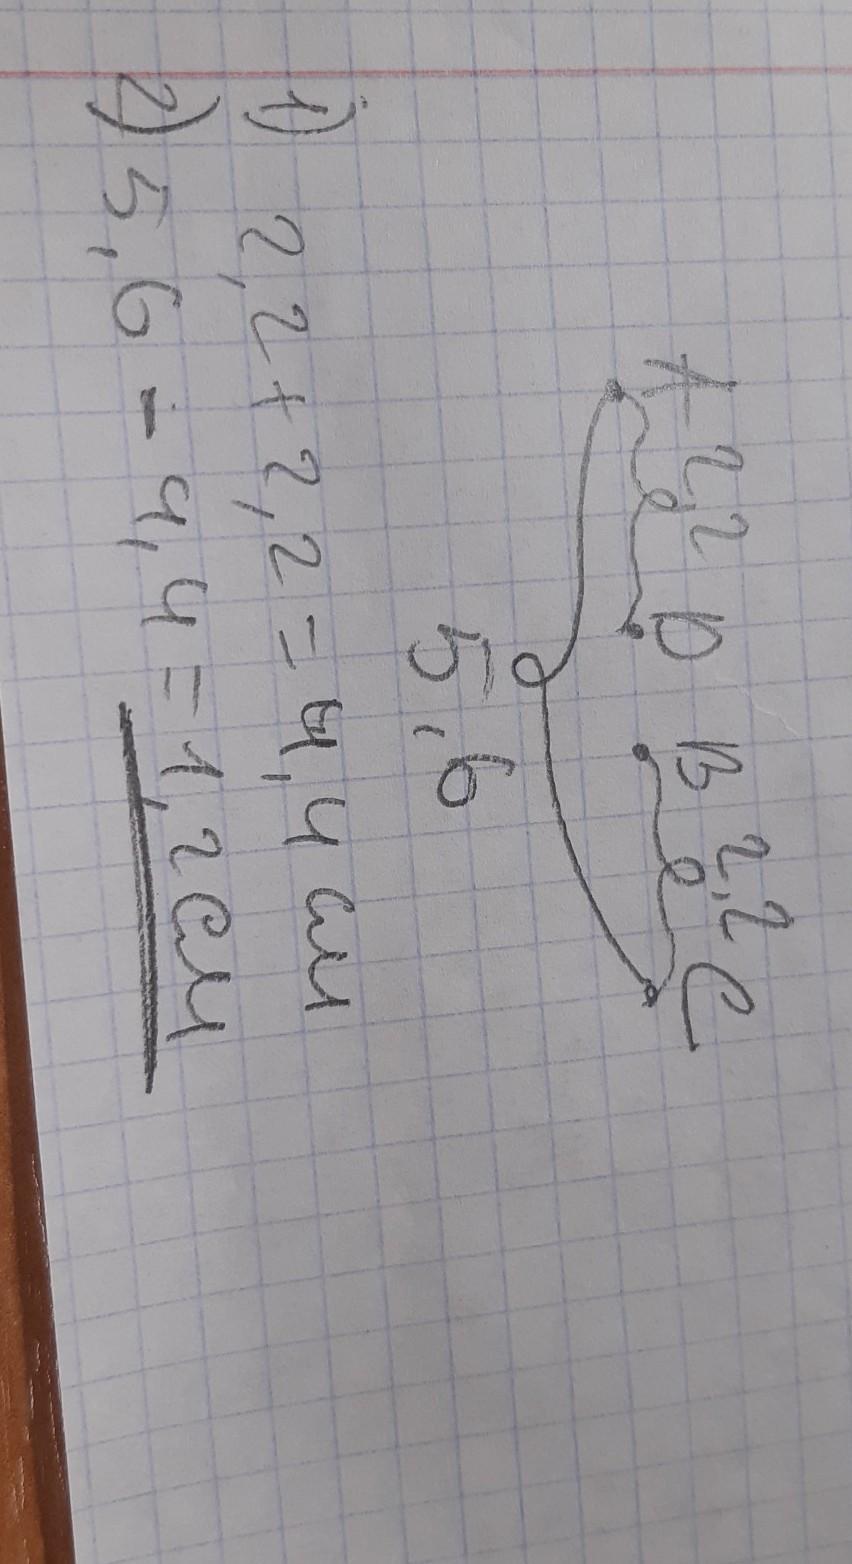 A 2,2 D B 2,2 C
5,6
1) 2,2 + 2,2 = 4,4 см
2) 5,6 - 4,4 = 1,2 см